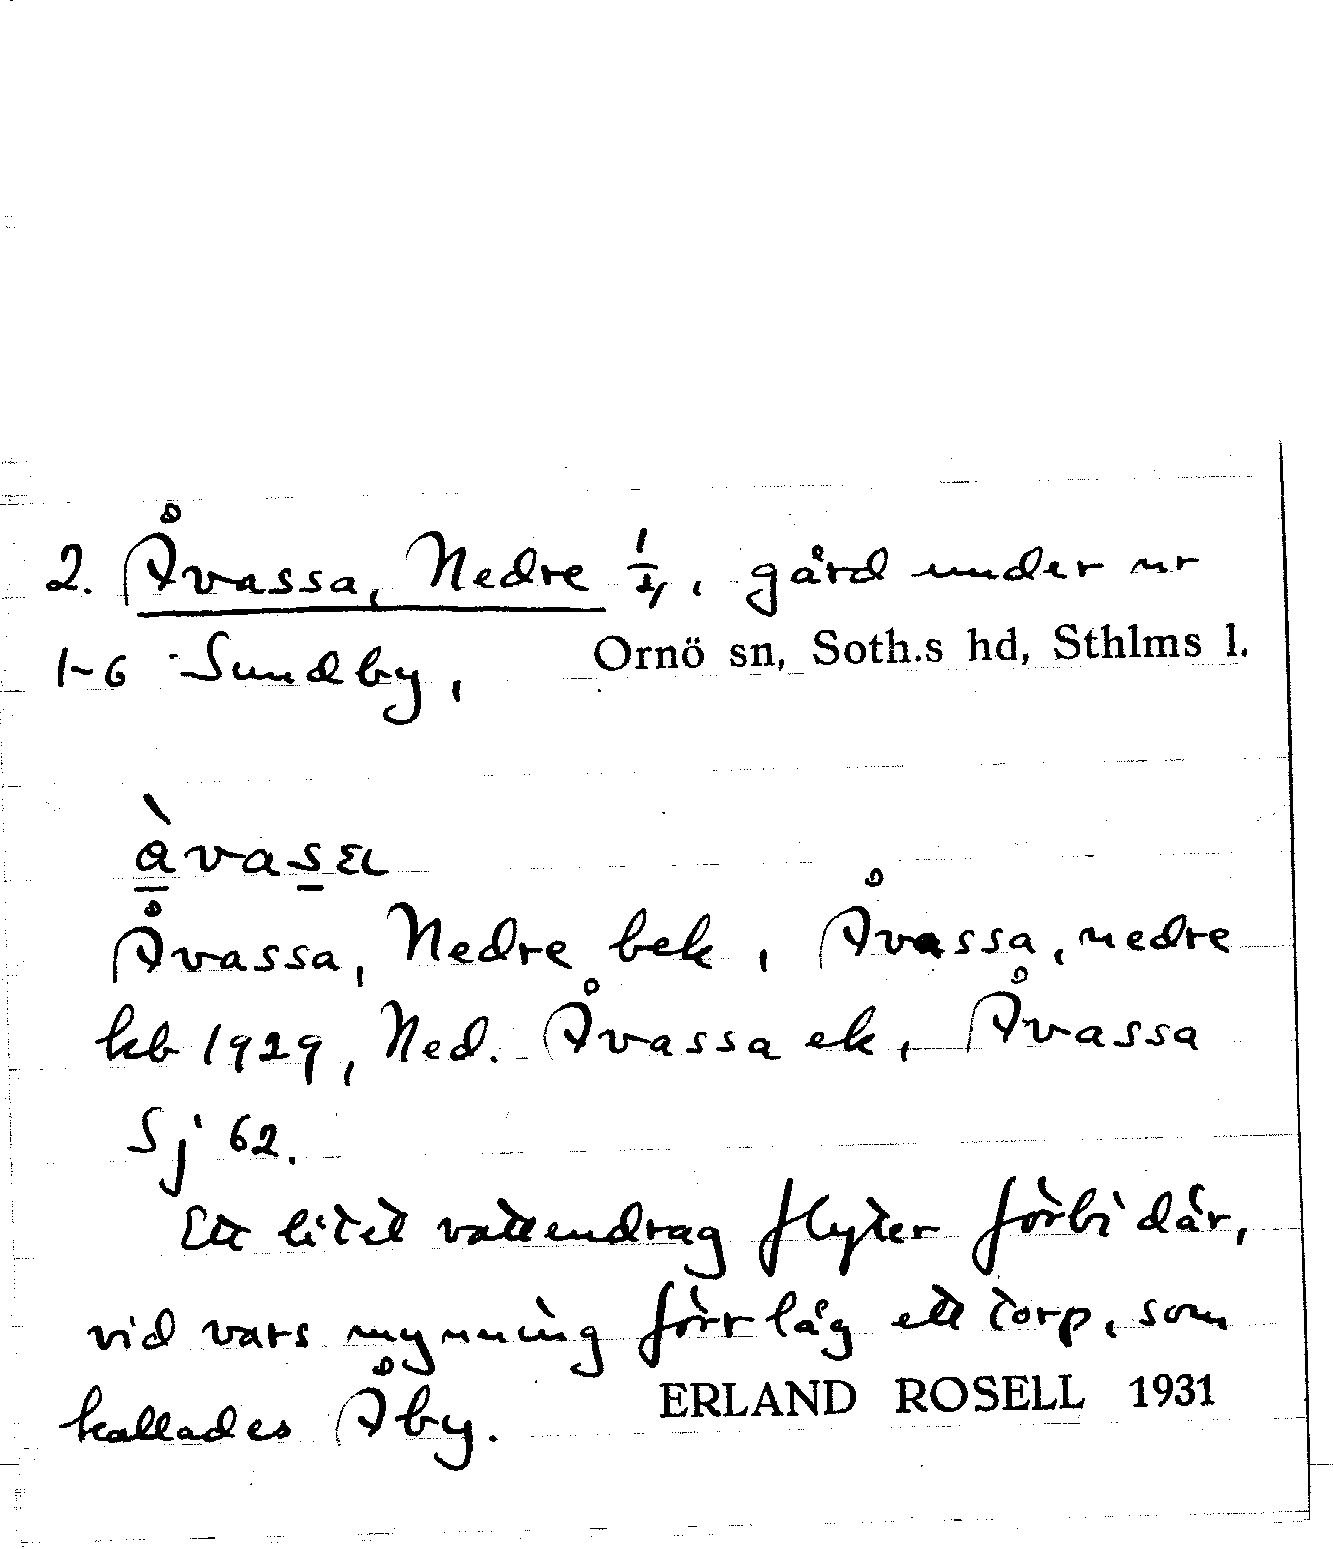 2. Åvassa, Nedre 1/4, gård under nr
1-6 Sundby, Ornö sn, Soth.s hd, Sthlms l.
Åvassa, Nedre bek, Åvassa, nedre
kb 1929, Ned. Åvassa ek, Åvassa
Sj 62.
Ett litet vattendrag flyter förbi där,
vid vars mynning förr låg ett torp, som
kallades Åby. ERLAND ROSELL 1931